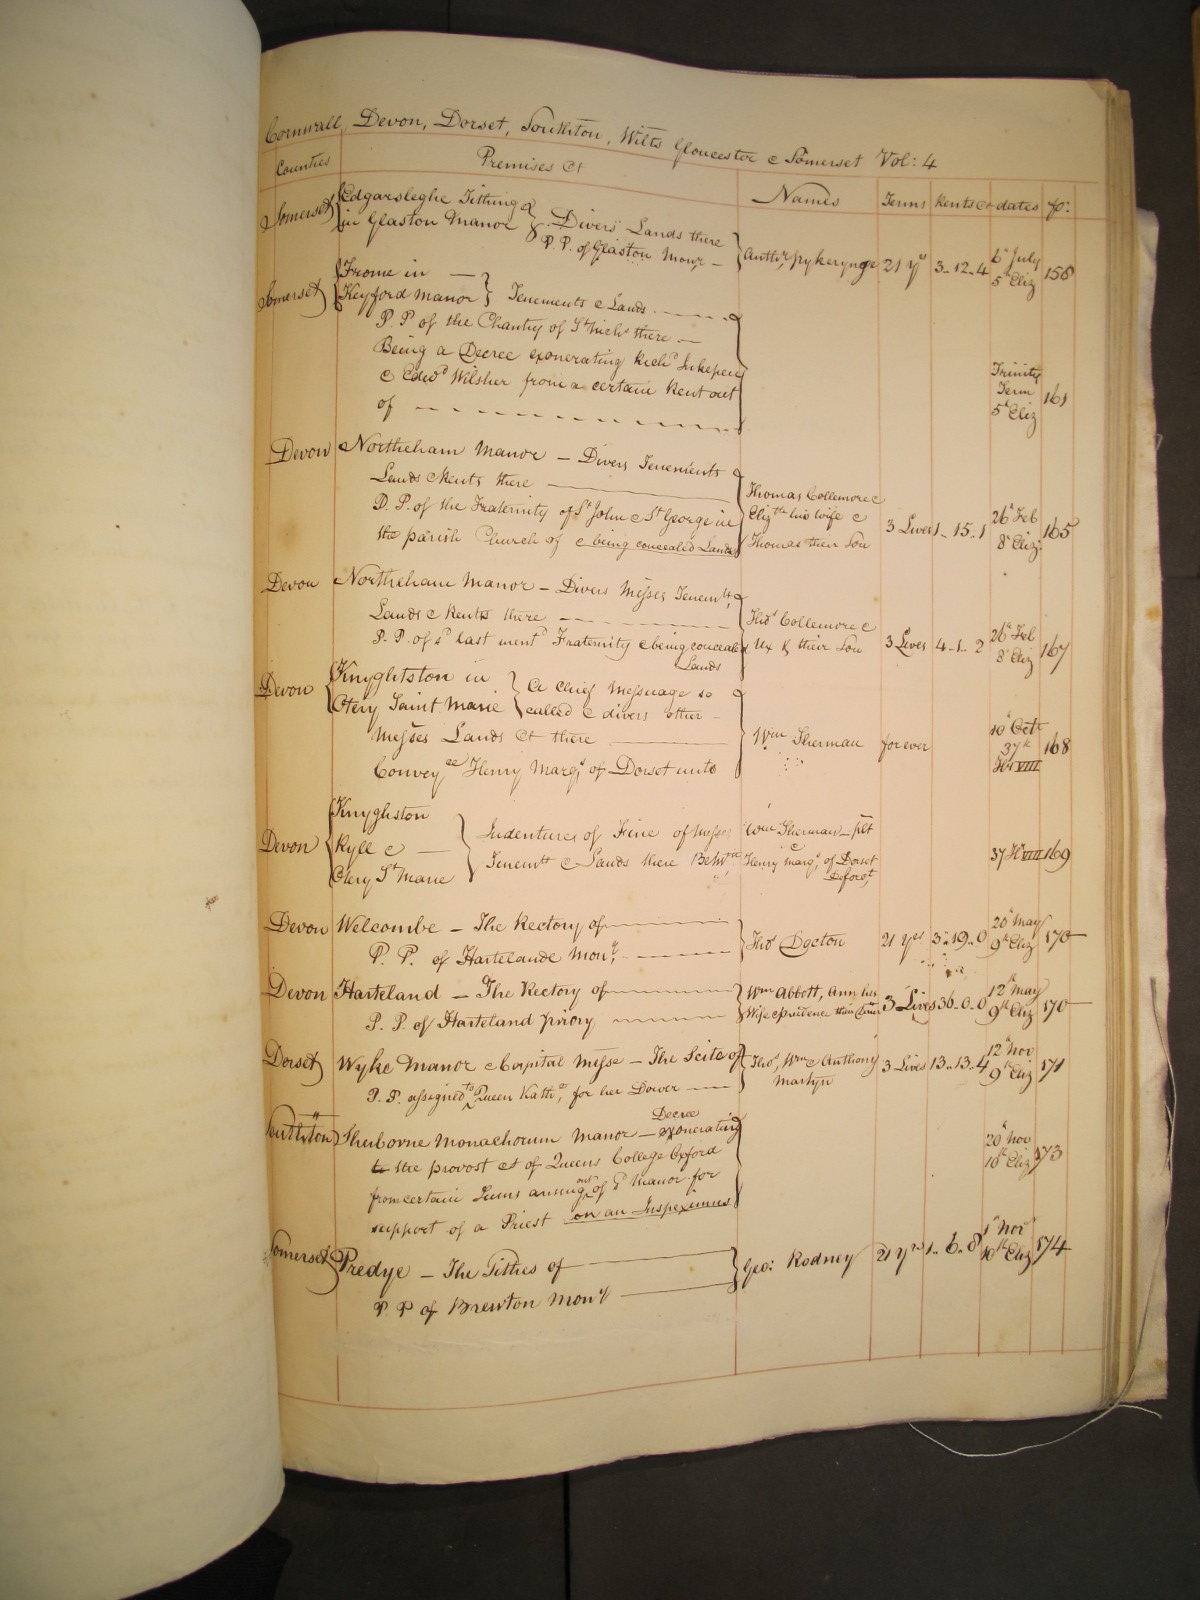 Cornwall, Devon, Dorset, Southton, Wilts Gloucester & Somerset Vol: 4
Counties Premises &c Names Terms Rents &c dates fo:
Somerset Edgarsleghe Tithing
in Glaston Manor Divers Lands there
P. P. of Glaston Mony Anthy pykerynge 21 yrs 3-12-4 6th July 5th Eliz 158
Somerset Frome in
Keyford Manor Tenements & Lands
P. P of the Chantry of St Nichs there
Being a Decree exonerating Richd Inkepen
& Edwd Wilsher from a certain Rent out
of Trinity Term 5th Eliz 161
Devon Northcham Manor - Divers Tenements
Lands & Rents there
P. P. of the Fraternity of St John & St George in
the parish Church of & being concealed Lands
Thomas Collemore &
Elizth his wife &
Thomas their Son 3 Lives 1.. 15.. 1 26th Feb 8th Eliz: 165
Devon Northcham Manor - Divers Messes Tenemts
Lands & Rents there
P. P. of sd last mentd Fraternity & being concealed
Lands
Thos Collemore &
Ux & their Son 3 Lives 4-1.. 2 26th Feb 8th Eliz 167
Devon Knyghtston in
Otery Saint Marie A chief Messuage so
called & divers other
Messes Lands &t there
Conveyce Henry Marqs of Dorset unto
Wm Sherman forever 10th Octr 37th Hy VIII 168
Devon Knyghston
Ryll &
Otery St Marie Indentures of Fine of Messes
Tenemts & Lands there Betwn
Wm Sherman - plt
&
Henry Marqs of Dorset
Deforct 37 H VIII 169
Devon Welcombe - The Rectory of
P. P. of Hartelande Mony Thos Docton 21 yrs 3..19..0 20th May 9th Eliz 170
Devon Harteland - The Rectory of
P. P. of Harteland priory Wm Abbott, Ann his
Wife & prudence their 3 Lives 36-0-0 12th May 9th Eliz 170
Dorset Wyke Manor & Capital Messe - The Scite of
P. P. assigned to Queen Kathe, for her Dower
Thos, Wm & Anthony
Martyn 3 Lives 13..13..4 12th Nov 9th Eliz 171
Southton Sherborne Monachorum Manor - Decree exonerating
the provost &t of Queens College Oxford
from certain Sums arising out of sd Manor for
support of a Priest on an Inspeximus 20th Nov 10th Eliz 173
Somerset Predye - The Tithes of
P. P of Brewton Mony Geo: Rodney 21 yrs 1.. 6.. 8 1st Nov 10th Eliz 174